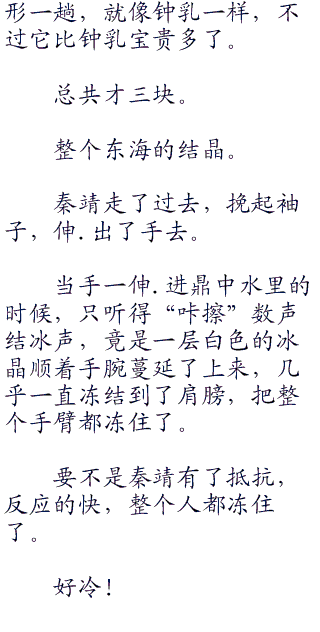 形一趟，就像钟乳一样，不
过它比钟乳宝贵多了。
总共才三块。
整个东海的结晶。
秦靖走了过去，挽起袖
子，伸.出了手去。
当手一伸.进鼎中水里的
时候，只听得“咔擦”数声
结冰声，竟是一层白色的冰
晶顺着手腕蔓延了上来，几
乎一直冻结到了肩膀，把整
个手臂都冻住了。
要不是秦靖有了抵抗，
反应的快，整个人都冻住
了。
好冷！